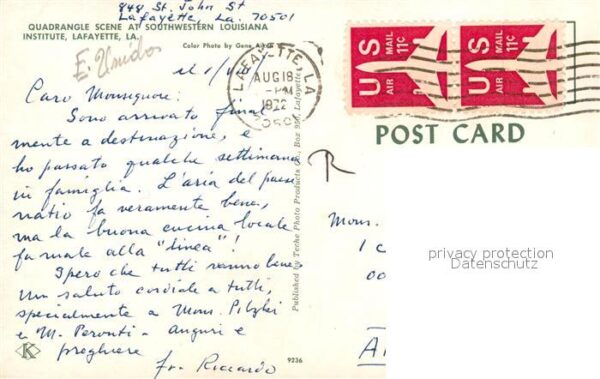 848 St. John St
Lafayette, La. 70501
QUADRANGLE SCENE AT SOUTHWESTERN LOUISIANA
INSTITUTE, LAFAYETTE, LA.
Color Photo by Gene
E. Unidos
il
Caro Monsignore:
Sono arrivato final
mente a destinazione, e
ho passato qualche settimana
in famiglia. L'aria del paese
natio fa veramente bene,
ma la buona cucina locale
fa male alla "linea"!
Spero che tutti vanno bene
Un saluto cordiale a tutti,
specialmente a Mons.
e M. Auguri e
preghiere
fr. Riccardo
K
9236
Published by Teche Photo Products Co., Box 956, Lafayette
LAFAYETTE, LA
AUG 18
PM
1972
US AIR MAIL 11c
US AIR MAIL 11c
POST CARD
R
Mons.
privacy protection
Datenschutz